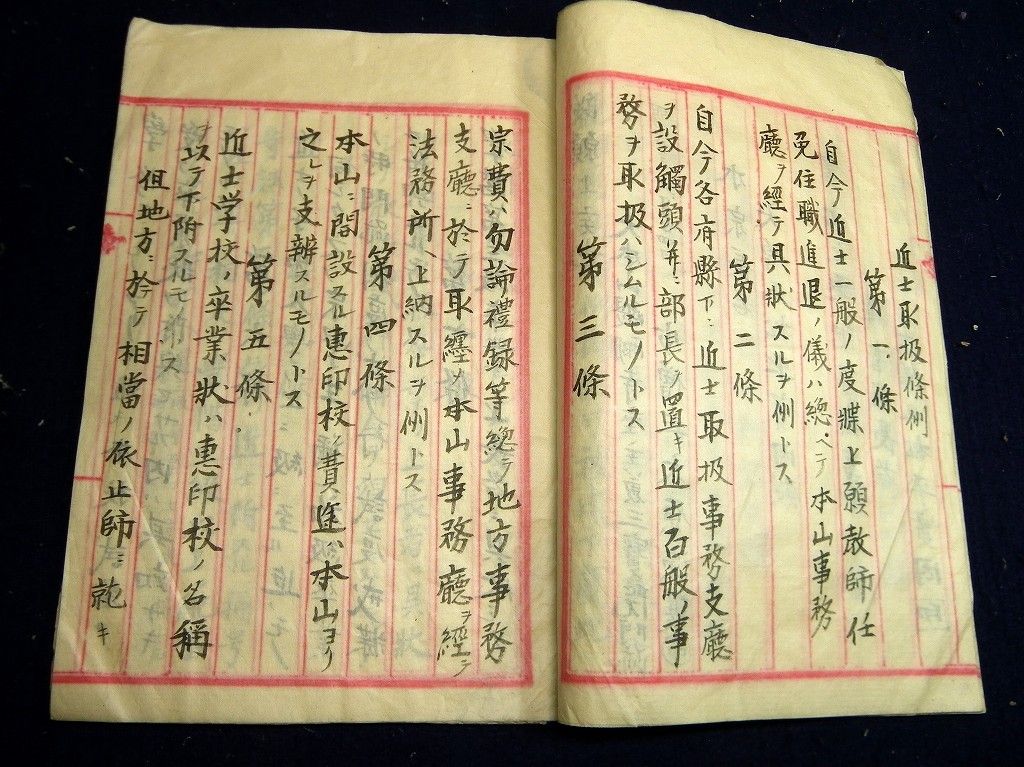 近士取扱条例
第一條
自今近士一般ノ度牒上願教師任
免住職進退ノ儀ハ總ベテ本山事務
廳ヲ經テ具状スルヲ例トス
第二條
自今各府縣下ニ近士取扱事務支廳
ヲ設觸頭并ニ部長ヲ置キ近士百般ノ事
務ヲ取扱ハシムルモノトス
第三條
宗費ハ勿論禮録等總テ地方事務
支廳ニ於テ取纒メ本山事務廳ヲ經テ
法務所ヘ上納スルヲ例トス
第四條
本山ニ開設スル惠印校ノ費途ハ本山ヨリ
之レヲ支辨スルモノトス
第五條
近士学校ノ卒業状ハ惠印校ノ名稱
ヲ以テ下附スルモノトス
但地方ニ於テ相當ノ依止師ニ就キ